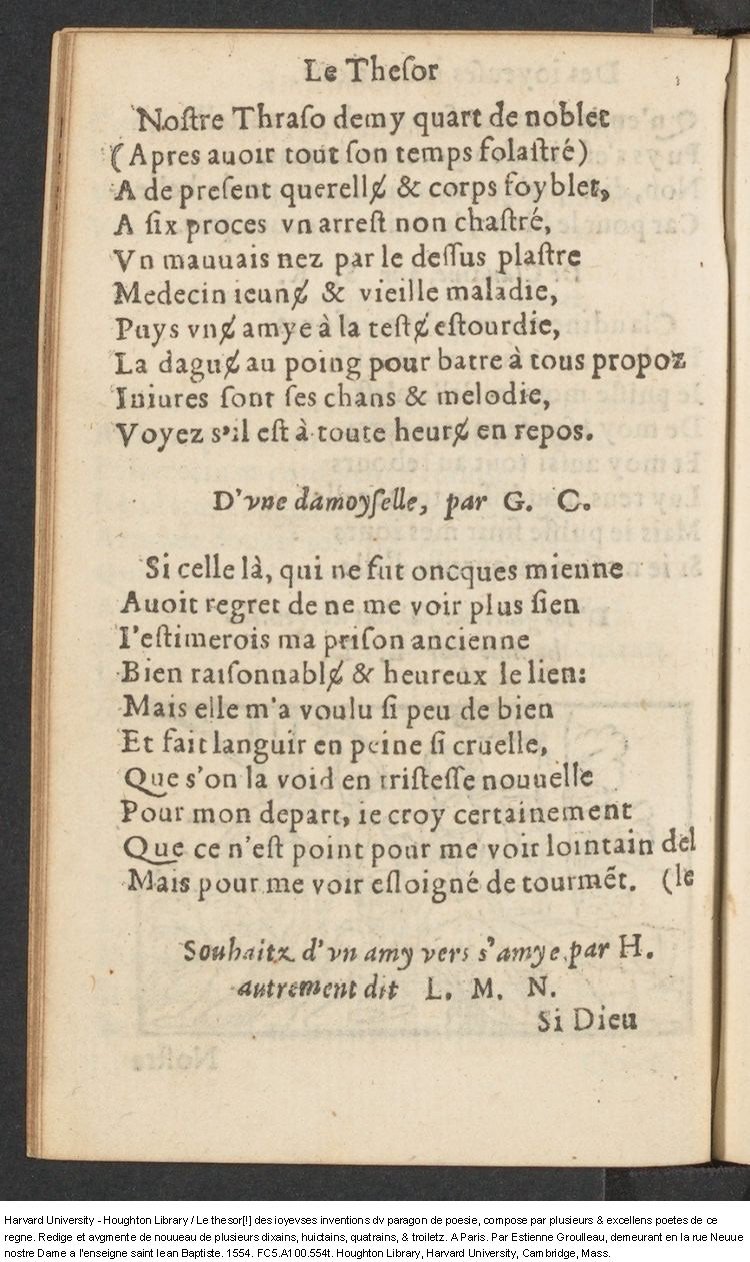 Le Theſor
Noſtre Thraſo demy quart de noblet
(Apres auoir tout ſon temps folaſtré)
A de preſent querellɇ & corps foyblet,
A ſix proces vn arreſt non chaſtré,
Vn mauuais nez par le deſſus plaſtre
Medecin ieunɇ & vieille maladie,
Puys vnɇ amye à la teſtɇ eſtourdie,
La daguɇ au poing pour batre à tous propoz
Iniures ſont ſes chans & melodie,
Voyez s'il eſt à toute heurɇ en repos.
D'vne damoyſelle, par G. C.
Si celle là, qui ne fut oncques mienne
Auoit regret de ne me voir plus ſien
I'eſtimerois ma priſon ancienne
Bien raiſonnablɇ & heureux le lien:
Mais elle m'a voulu ſi peu de bien
Et fait languir en peine ſi cruelle,
Que s'on la void en triſteſſe nouuelle
Pour mon depart, ie croy certainement
Que ce n'eſt point pour me voir lointain del
Mais pour me voir eſloigné de tourmẽt. (le
Souhaitz d'vn amy vers s'amye par H.
autrement dit L. M. N.
Si Dieu
Harvard University - Houghton Library / Le thesor[!] des ioyevses inventions dv paragon de poesie, compose par plusieurs & excellens poetes de ce
regne. Redige et avgmente de nouueau de plusieurs dixains, huictains, quatrains, & troiletz. A Paris. Par Estienne Groulleau, demeurant en la rue Neuue
nostre Dame a l'enseigne saint Iean Baptiste. 1554. FC5.A100.554t. Houghton Library, Harvard University, Cambridge, Mass.